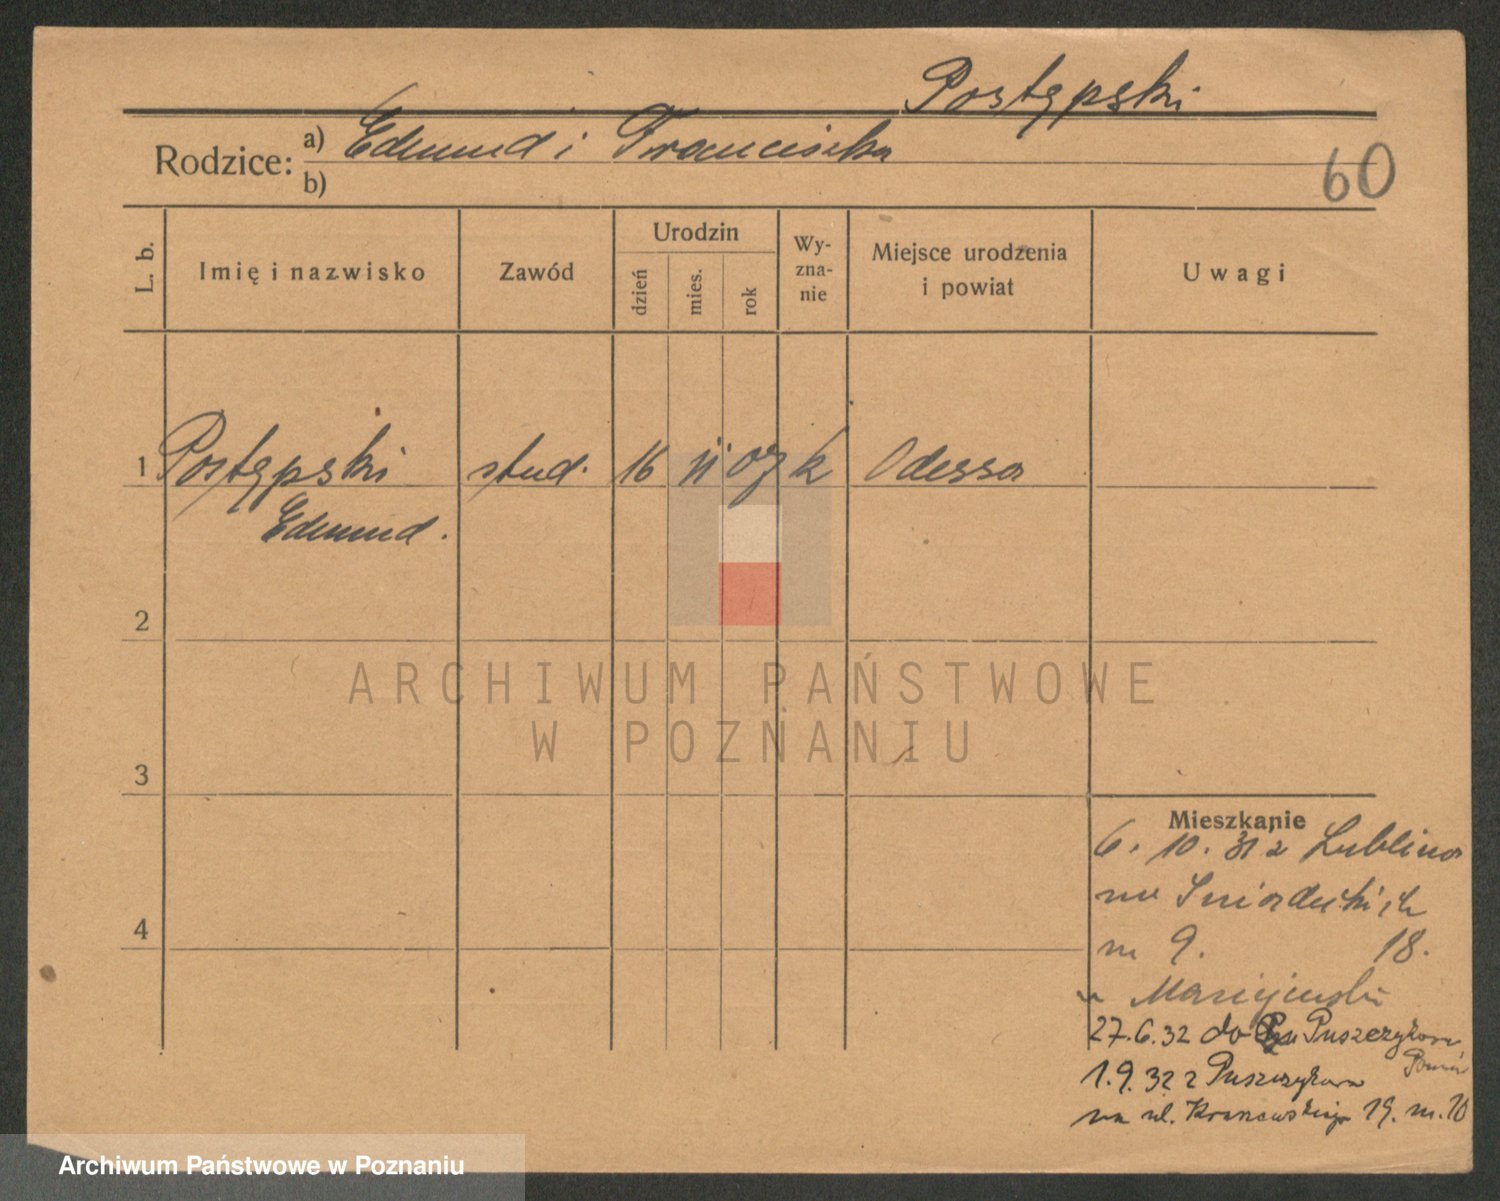 Postępski
Rodzice: a) Edmund i Franciszka
b)
60
L. b. Imię i nazwisko Zawód Urodzin dzień mies. rok Wyznanie Miejsce urodzenia i powiat Uwagi
1 Postępski stud. 16 11 07 k Odessa
Edmund.
2
3
4
ARCHIWUM PAŃSTWOWE
W POZNANIU
Mieszkanie
6. 10. 31 z Lublina
na Śniadeckich
m 9. 18.
Maciejewski
27.6.32 do Puszczykowa
1.9.32 z Puszczykowa
na ul. Kraszewskiego 19. m. 10
Archiwum Państwowe w Poznaniu